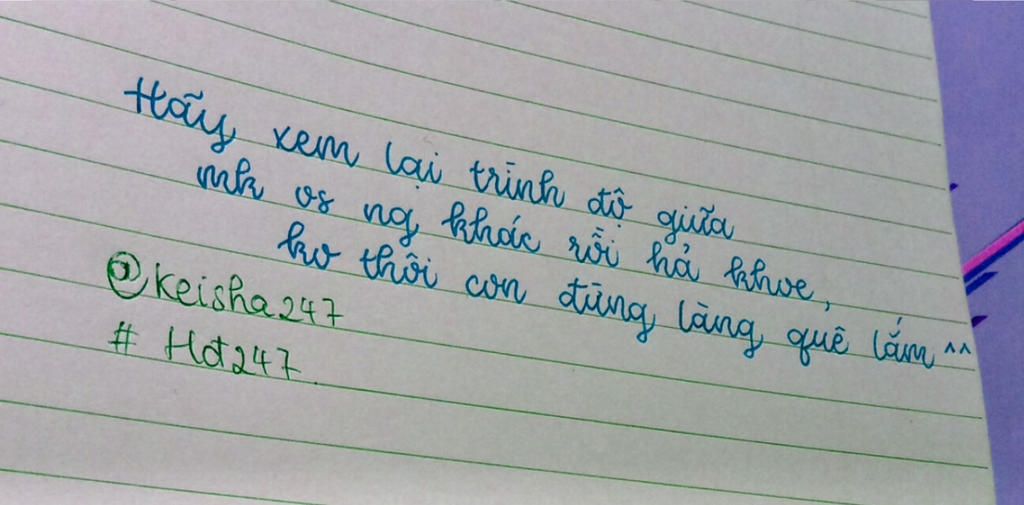 Hãy xem lại trình độ giữa
mk vs ng khác rồi hả khoe,
ko thôi con đũng làng quê lắm ^^
@keisha247
# Hđ247